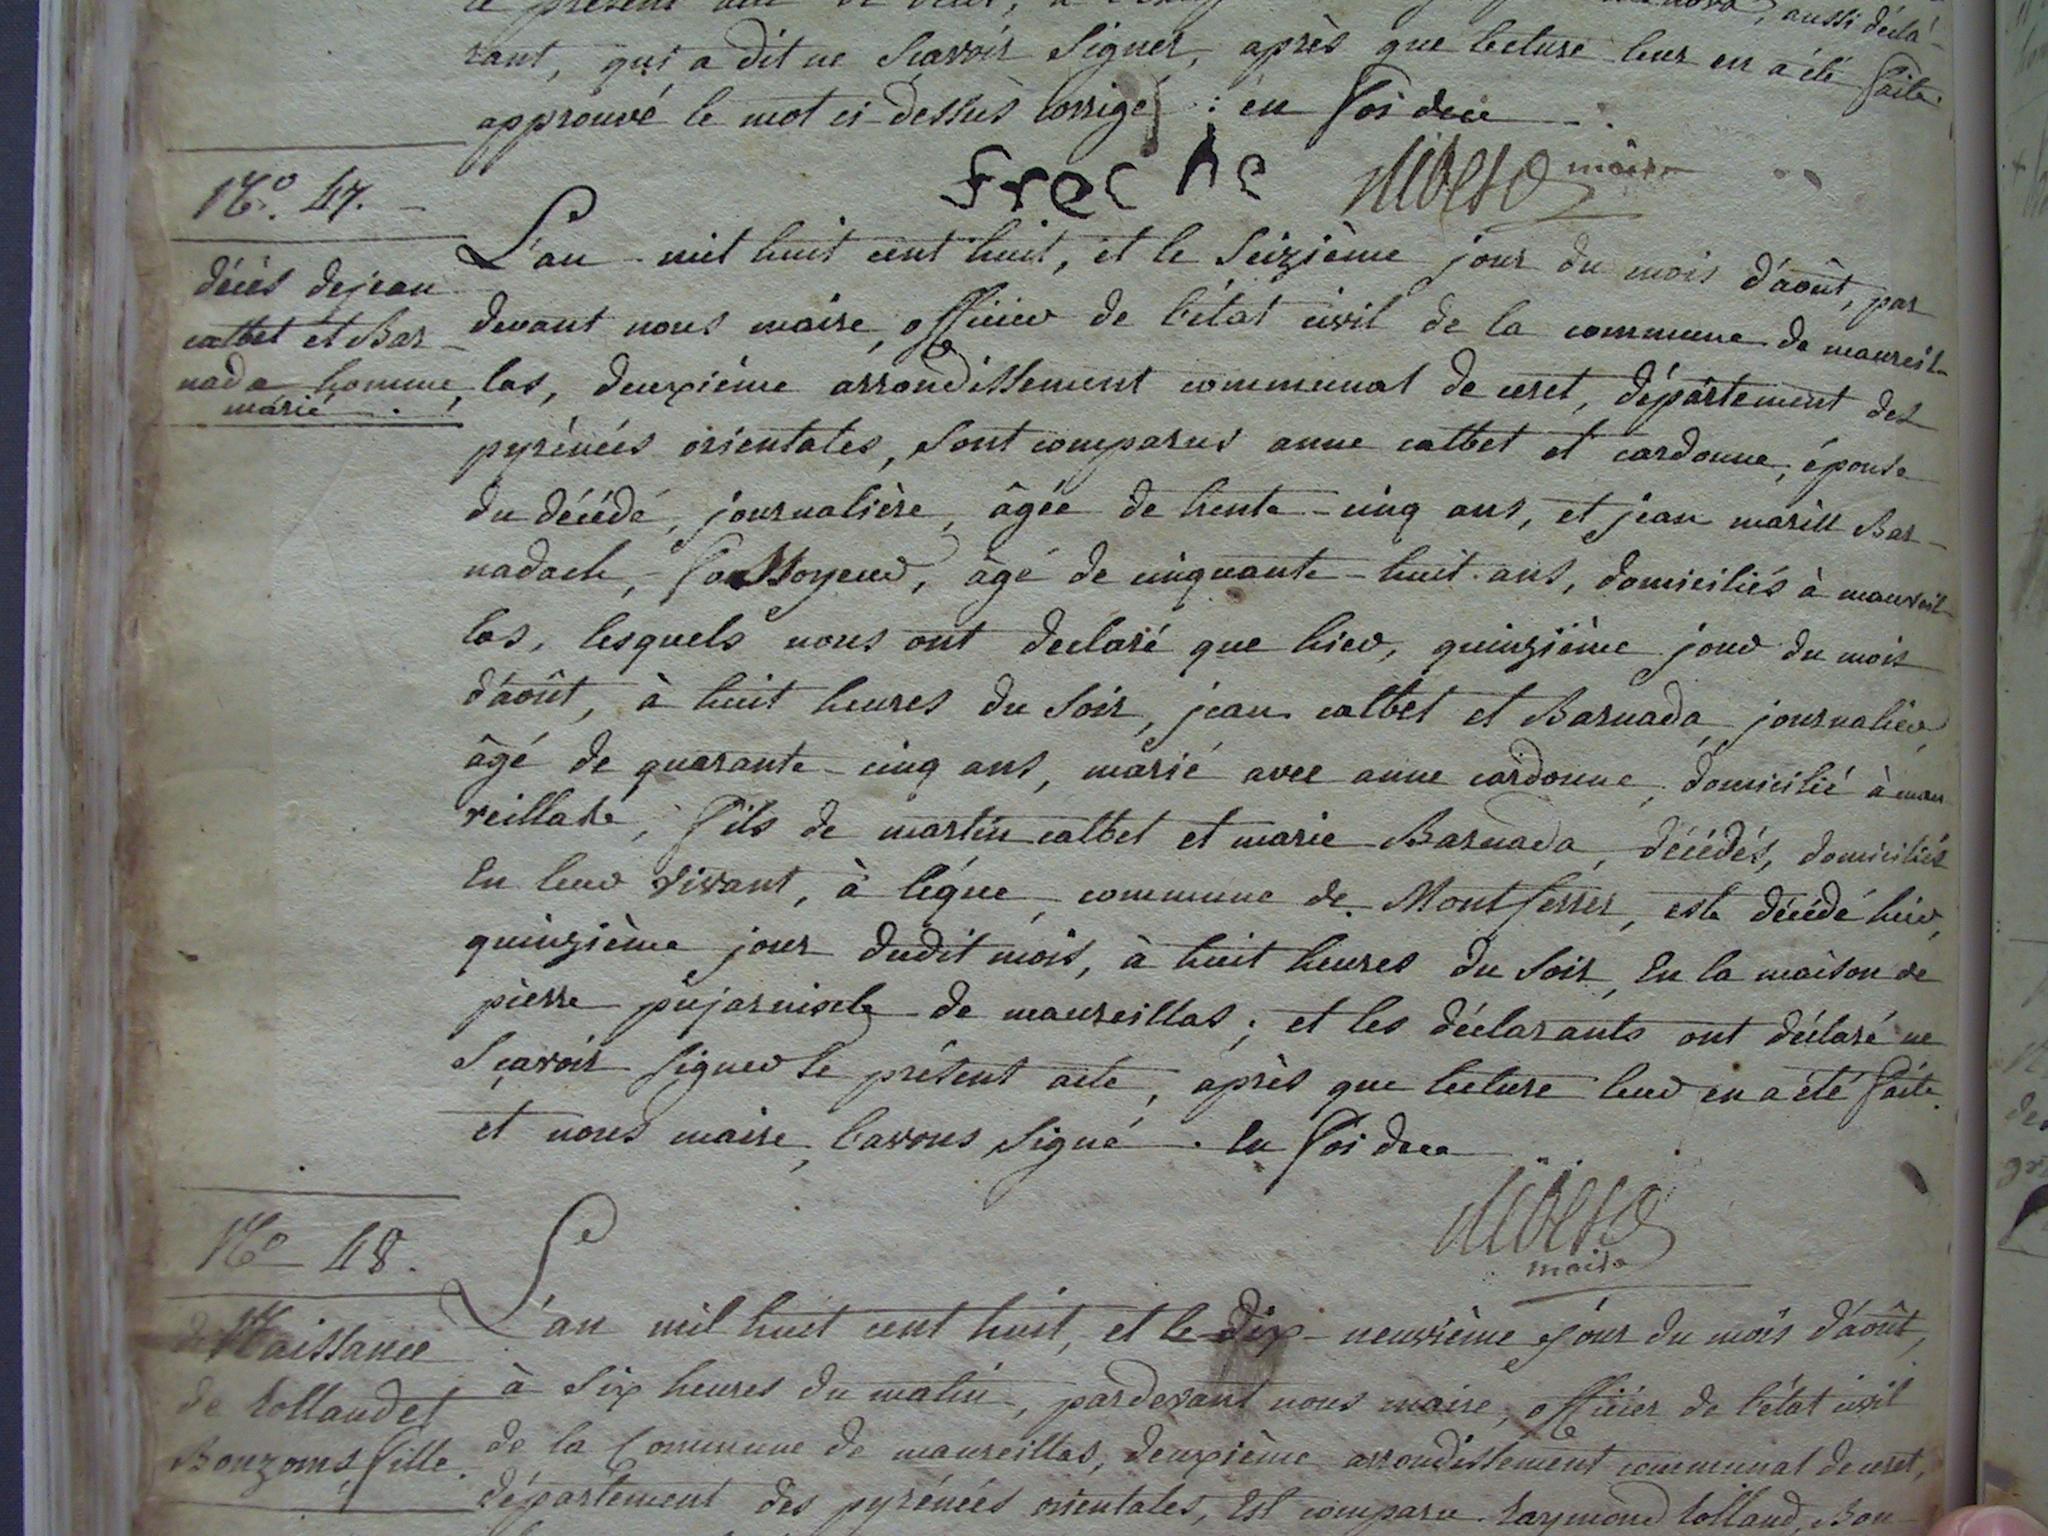 rant, qui a dit ne sçavoir signer, après que lecture leur en a été faite.
approuvé le mot ci-dessus corrigé : en foi dece
freche maire
N.o 47.
décès de jean
calbet et Bar-
nada homme
marié.
L'an mil huit cent huit, et le seizième jour du mois d'août, par
devant nous maire, officier de l'état civil de la commune de maureil-
las, deuxième arrondissement communal de ceret, département des
pyrénées orientales, sont comparus anne calbet et cardonne, épouse
du décédé, journalière, âgée de trente-cinq ans, et jean marill Bar-
nadach, fossoyeur, âgé de cinquante-huit ans, domiciliés à maureil-
las, lesquels nous ont declaré que hier, quinzième jour du mois
d'août, à huit heures du soir, jean calbet et Barnada, journalier,
âgé de quarante-cinq ans, marié avec anne cardonne, domicilié à mau
reillas, fils de martin calbet et marie Barnada, décédés, domiciliés
en leur vivant, à léque, commune de Montferrer, est décédé hier,
quinzième jour dudit mois, à huit heures du soir, en la maison de
pierre pujarniscle de maureillas; et les déclarants ont déclaré ne
sçavoir signer le présent acte, après que lecture leur en a été faite.
et nous maire, l'avons signé. en foi dece
maire
No 48.
Naissance
de rolland et
Bouzoms fille.
L'an mil huit cent huit, et le dix-neuvième jour du mois d'août,
à six heures du matin, pardevant nous maire, officier de l'état civil
de la Commune de maureillas, deuxième arrondissement communal de ceret,
département des pyrénées orientales, est comparu raymond rolland, Bou-